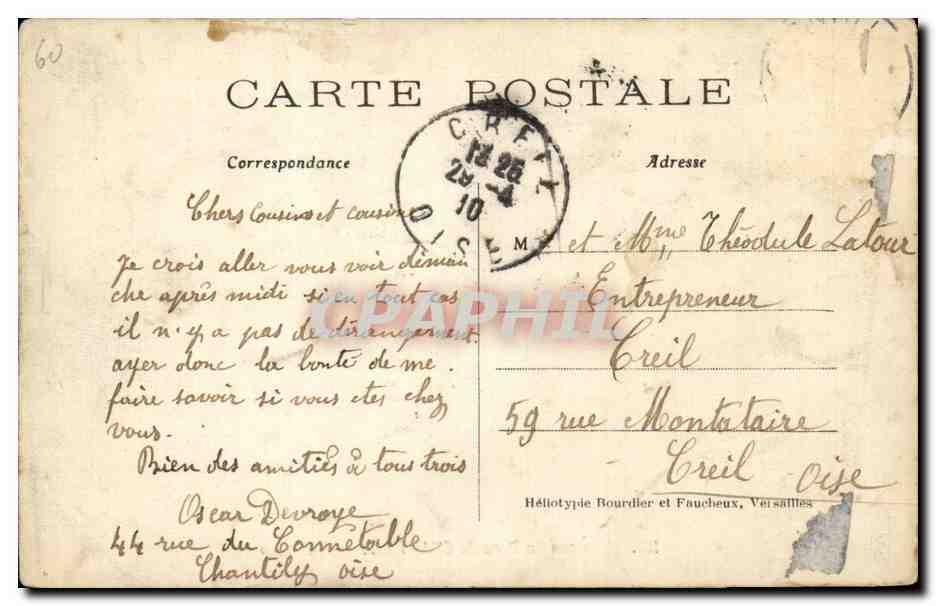 60
CARTE POSTALE
Correspondance
Chers Cousins et cousine
Je crois aller vous voir diman
che après midi si en tout cas
il n'y a pas de dérangement
ayer donc la bonté de me.
faire savoir si vous etes chez
vous.
Bien des amitiés à tous trois
Oscar Devroye
44 rue du Connétable
Chantily oise
CREIL
12 25
28 -4
10
OISE
Adresse
M. et Mme Théodule Latour
Entrepreneur
Creil
59 rue Montataire
Creil Oise
Héliotypie Bourdier et Faucheux, Versailles
CPAPHIL